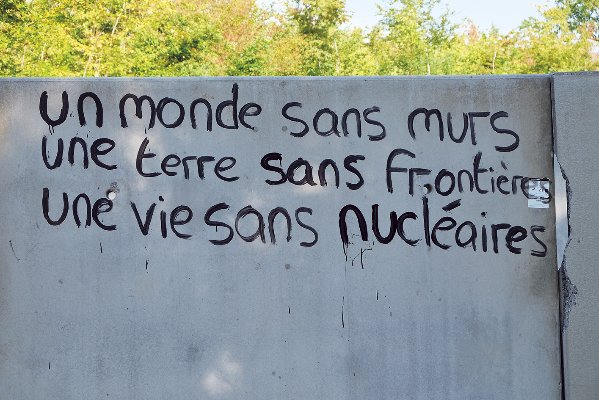 un monde sans murs
une terre sans frontières
une vie sans nucléaires